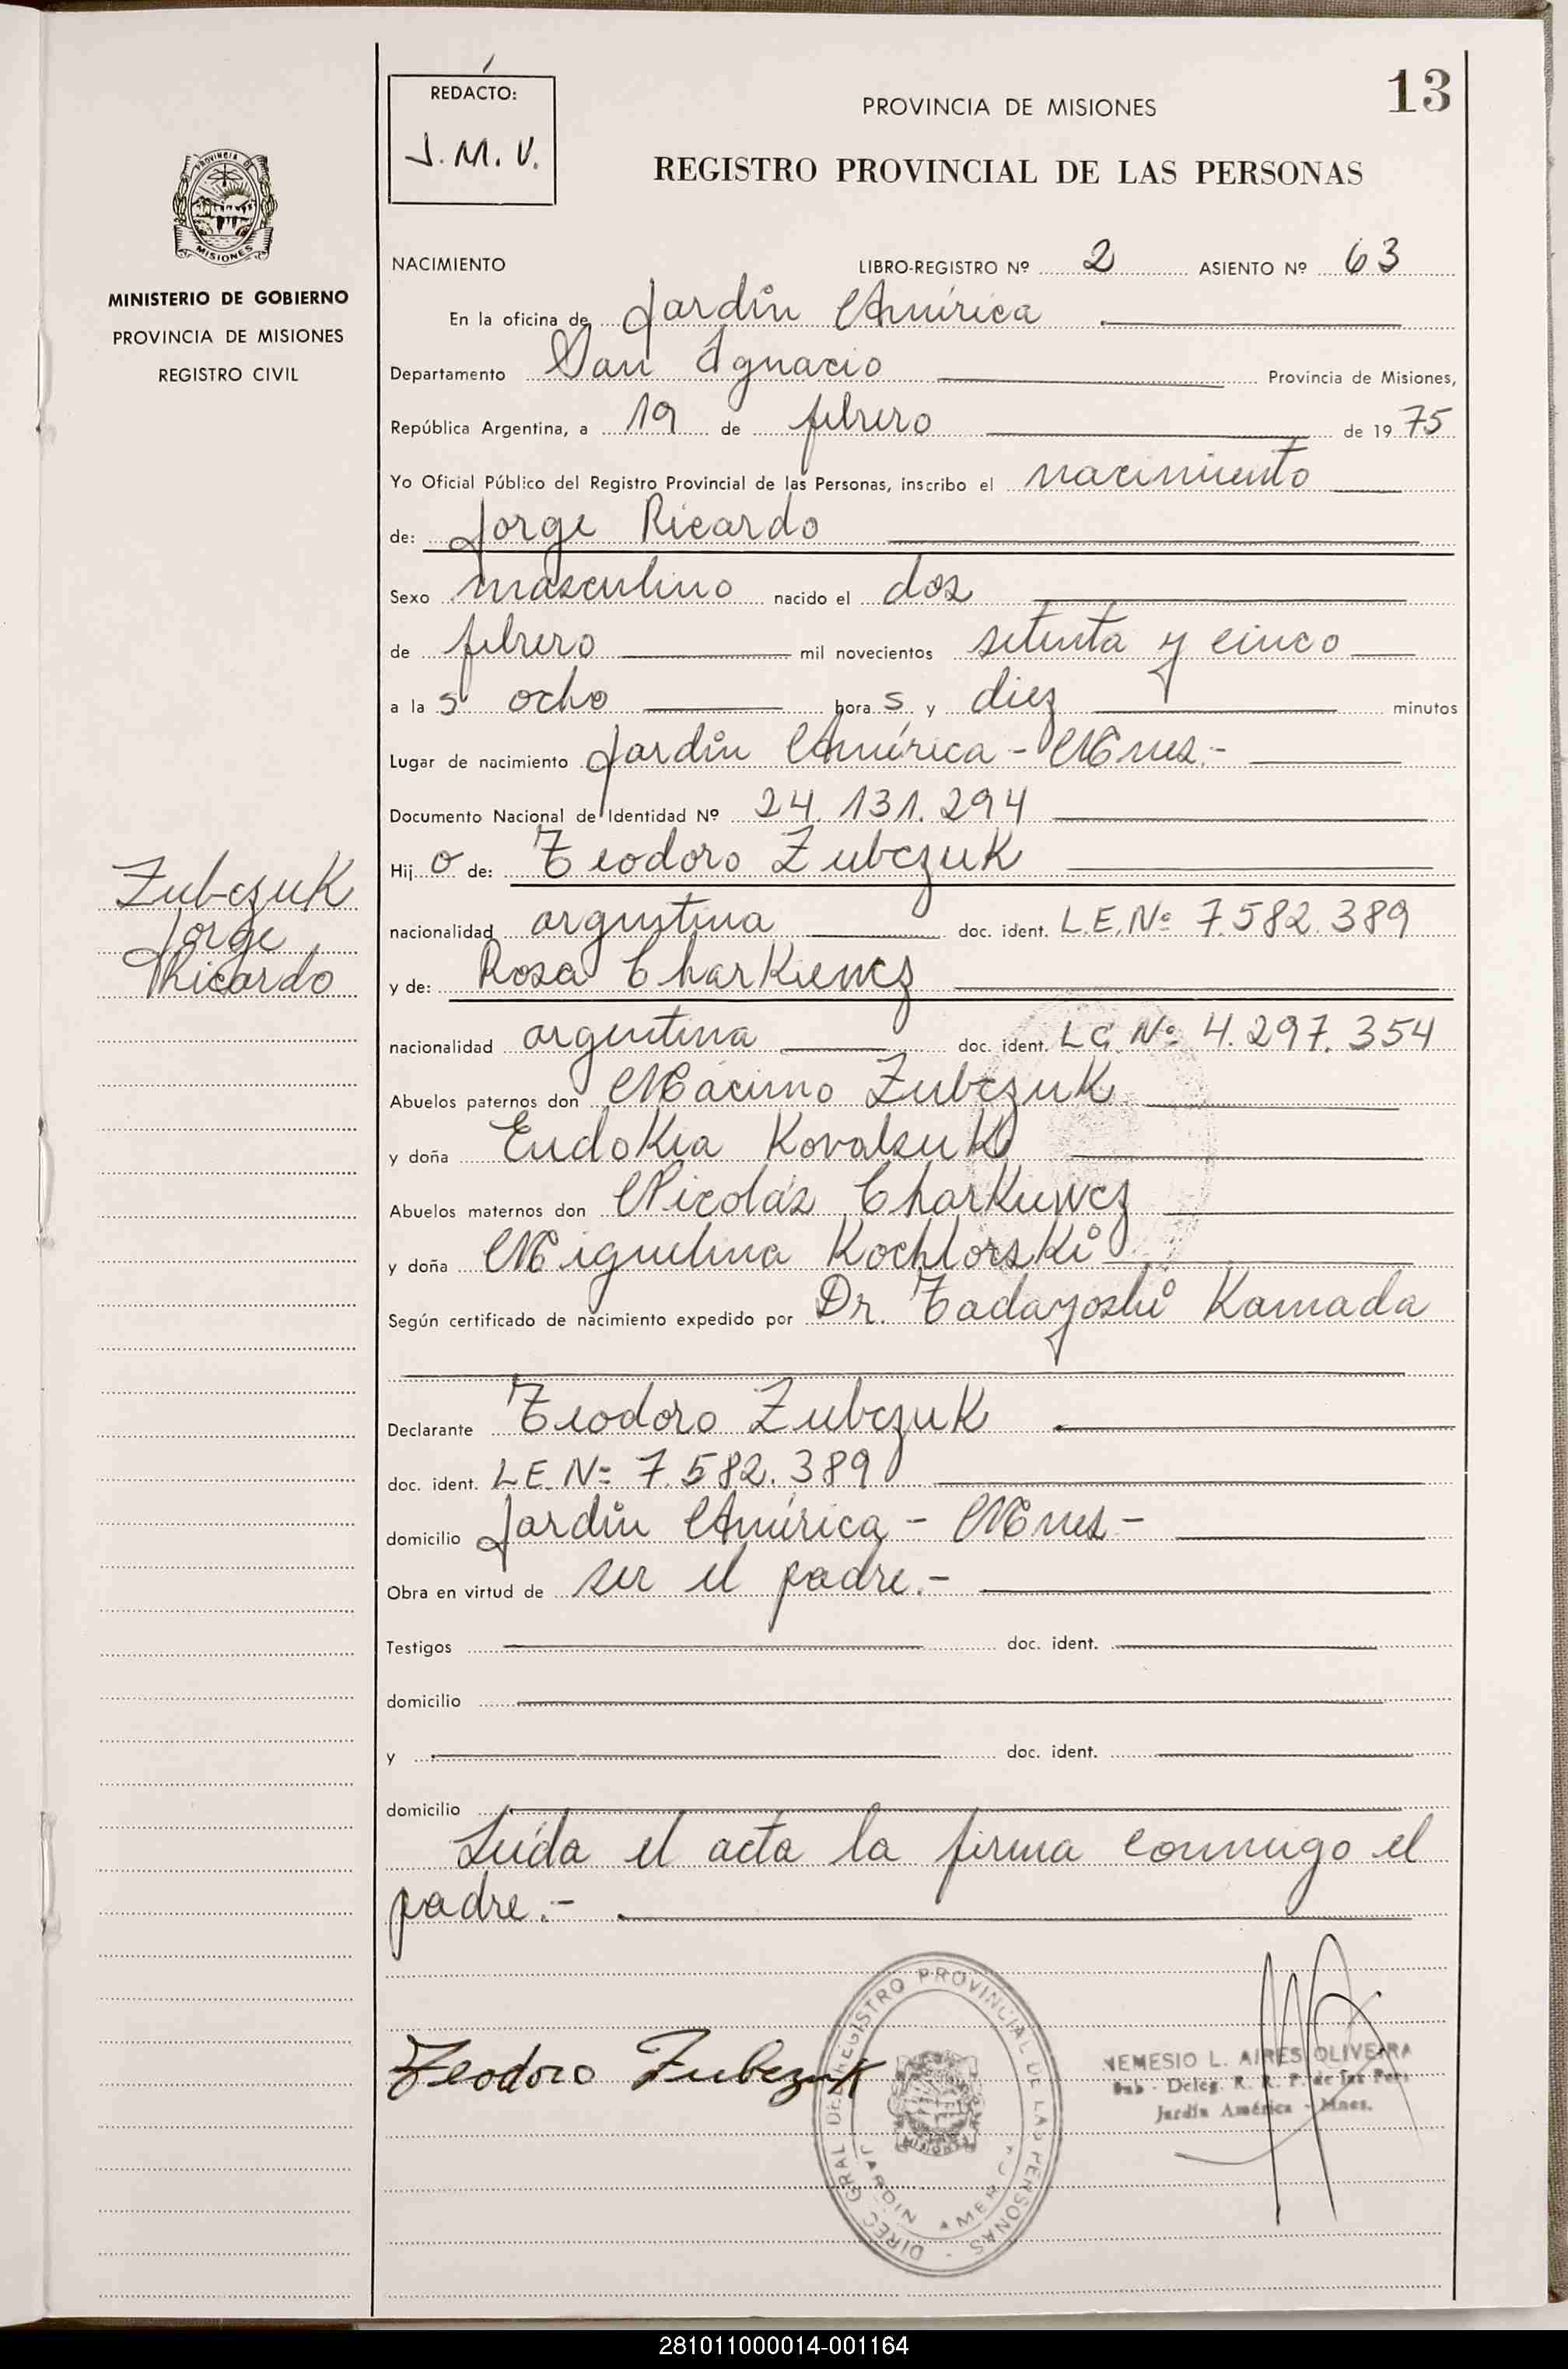 13
REDACTO:
J.M.V.
PROVINCIA DE MISIONES
REGISTRO PROVINCIAL DE LAS PERSONAS
PROVINCIA DE
MISIONES
MINISTERIO DE GOBIERNO
PROVINCIA DE MISIONES
REGISTRO CIVIL
NACIMIENTO LIBRO-REGISTRO Nº 2 ASIENTO Nº 63
En la oficina de Jardín América
Departamento San Ignacio Provincia de Misiones,
República Argentina, a 19 de febrero de 19 75
Yo Oficial Público del Registro Provincial de las Personas, inscribo el nacimiento
de: Jorge Ricardo
Sexo masculino nacido el dos
de febrero mil novecientos setenta y cinco
a la s ocho hora s y diez minutos
Lugar de nacimiento Jardín América - Mnes.-
Documento Nacional de Identidad Nº 24.131.294
Hij o de: Teodoro Zubczuk
Zubczuk
Jorge
Ricardo
nacionalidad argentina doc. ident. L.E.Nº 7.582.389
y de: Rosa Charkiewcz
nacionalidad argentina doc. ident. L.C. Nº 4.297.354
Abuelos paternos don Mácimo Zubczuk
y doña Eudokia Kovalsuk
Abuelos maternos don Nicolás Charkiewcz
y doña Miguelina Kochlorski
Según certificado de nacimiento expedido por Dr. Tadayoshi Kamada
Declarante Teodoro Zubczuk
doc. ident. L.E. Nº 7.582.389
domicilio Jardín América - Mnes -
Obra en virtud de ser el padre.-
Testigos doc. ident.
domicilio
y doc. ident.
domicilio
Leída el acta la firma conmigo el
padre.-
Teodoro Zubczuk
DIREC. GRAL. DEL REGISTRO PROVINCIAL DE LAS PERSONAS
MISIONES
JARDIN AMERICA
NEMESIO L. AIRES OLIVEIRA
Sub - Deleg. R. P. de las Pers
Jardín América - Mnes.
281011000014-001164